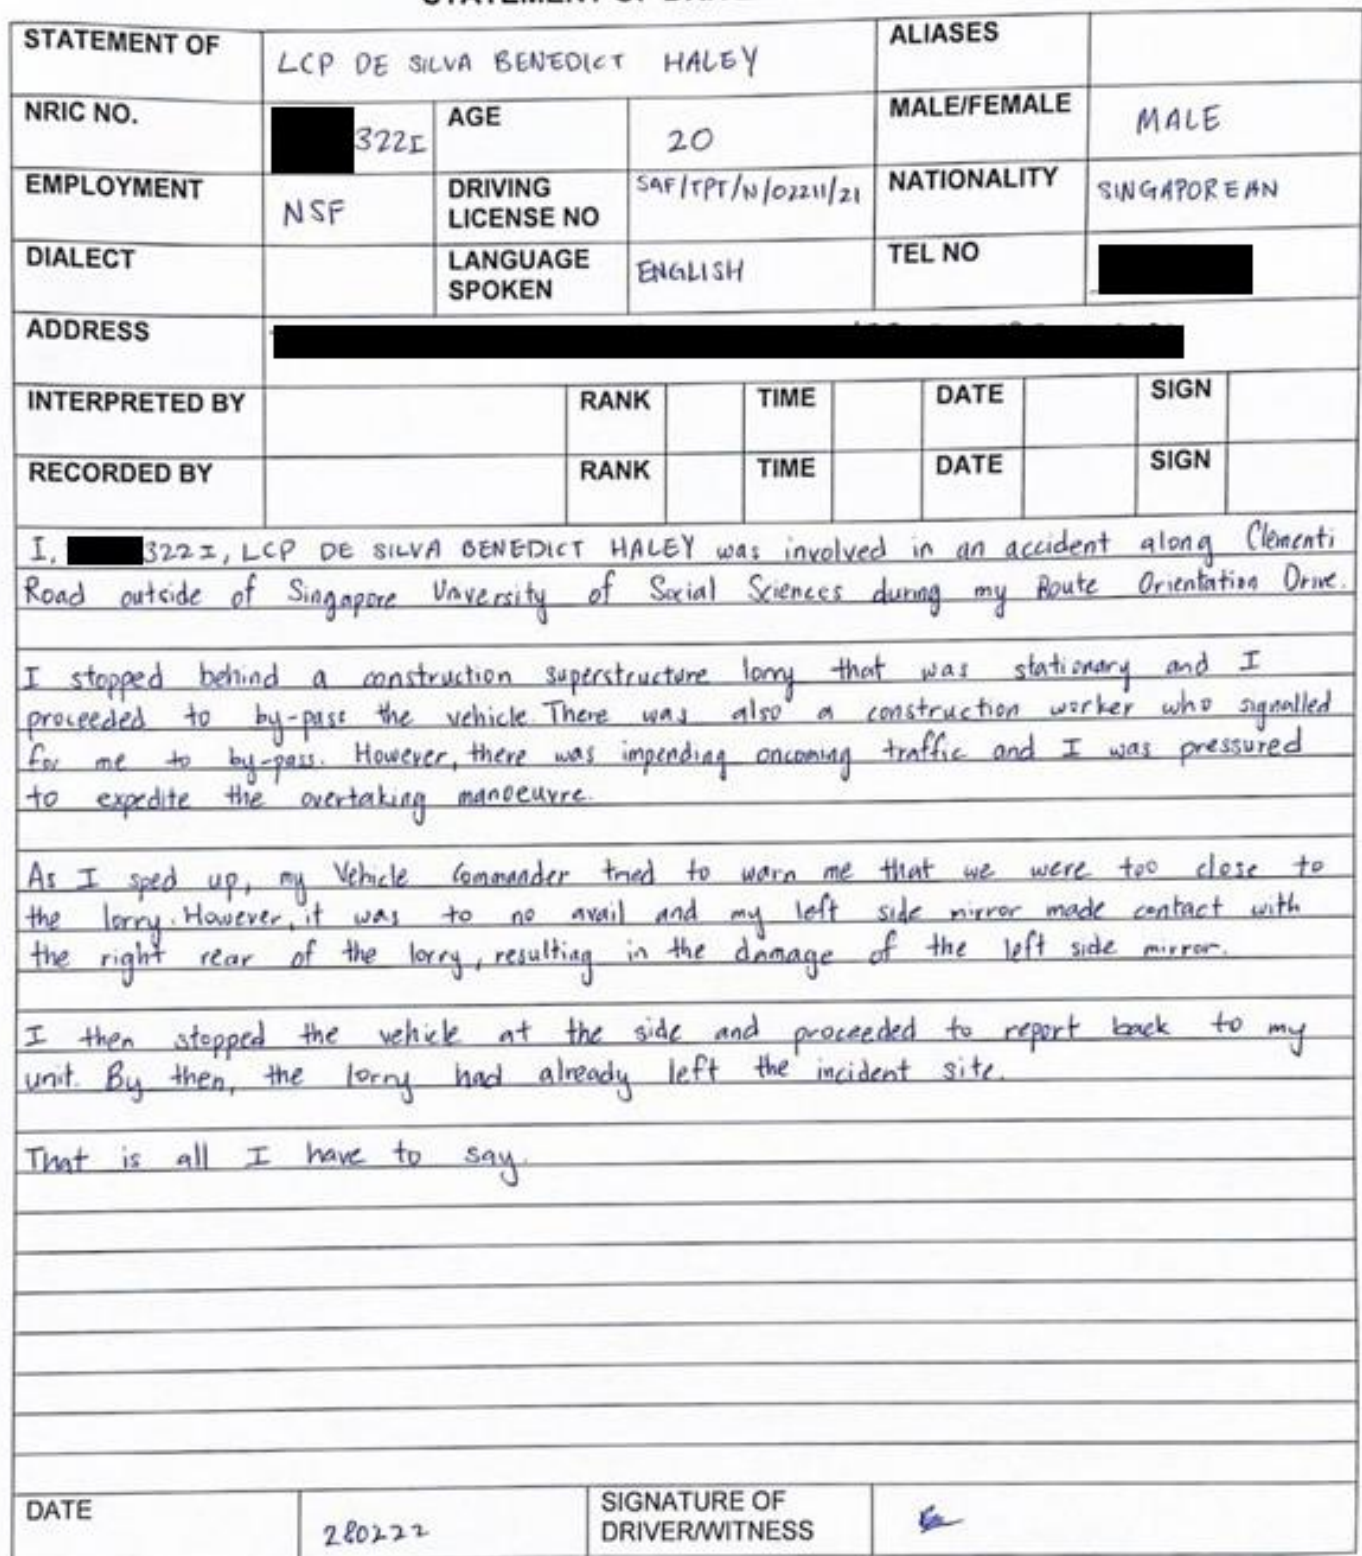 STATEMENT OF LCP DE SILVA BENEDICT HALEY ALIASES
NRIC NO. 322I AGE 20 MALE/FEMALE MALE
EMPLOYMENT NSF DRIVING LICENSE NO SAF/TPT/N/02211/21 NATIONALITY SINGAPOREAN
DIALECT LANGUAGE SPOKEN ENGLISH TEL NO
ADDRESS
INTERPRETED BY RANK TIME DATE SIGN
RECORDED BY RANK TIME DATE SIGN
I, 322I, LCP DE SILVA BENEDICT HALEY was involved in an accident along Clementi
Road outside of Singapore Unversity of Social Sciences during my Route Orientation Drive.
I stopped behind a construction superstructure lorry that was stationary and I
proceeded to by-pass the vehicle. There was also a construction worker who signalled
for me to by-pass. However, there was impending oncoming traffic and I was pressured
to expedite the overtaking manoeuvre.
As I sped up, my Vehicle Commander tried to warn me that we were too close to
the lorry. However, it was to no avail and my left side mirror made contact with
the right rear of the lorry, resulting in the damage of the left side mirror.
I then stopped the vehicle at the side and proceeded to report back to my
unit. By then, the lorry had already left the incident site.
That is all I have to say.
DATE 280222 SIGNATURE OF DRIVER/WITNESS